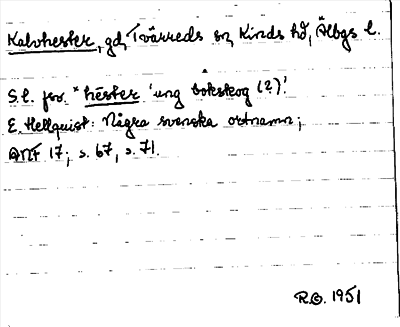 Kalvhester, gd, Tvärreds sn, Kinds hd, Älbgs l.
S.l. fsv. *hēster 'ung bokskog (?)'.
E. Hellquist: Några svenska ortnamn;
ANF 17, s. 67, s. 71.
R.G. 1951